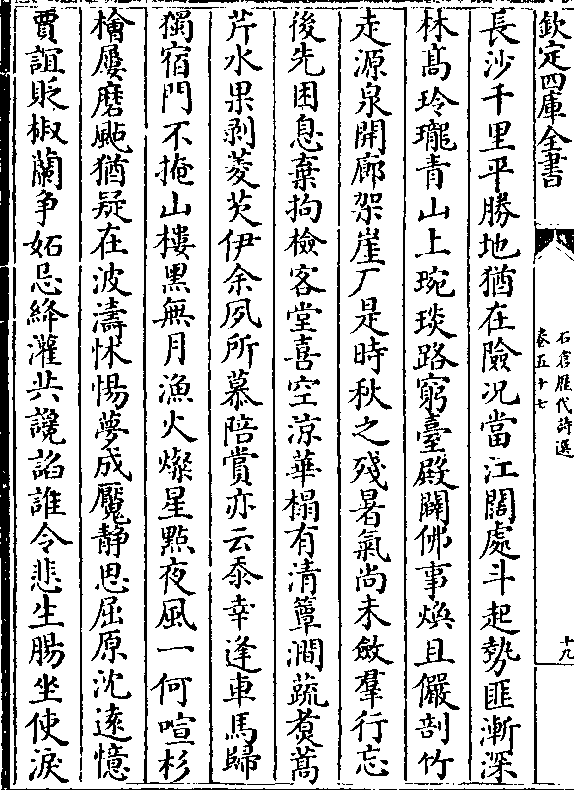 欽定四庫全書
石倉歷代詩選
卷五十七
十九
長沙千里平勝地猶在險况當江闊處斗起勢匪漸深
林髙玲瓏青山上琬琰路窮臺殿闢佛事煥且儼剖竹
走源泉開廊架崖厂是時秋之殘暑氣尚未斂羣行忘
後先困息棄拘檢客堂喜空涼華榻有清簟澗蔬煮蒿
芹水果剥菱芡伊余夙所慕陪賞亦云忝幸逢車馬歸
獨宿門不掩山樓黒無月漁火燦星㸃夜風一何喧杉
檜屢磨颭猶疑在波濤怵惕夢成魘静思屈原沈逺憶
賈誼貶椒蘭争妬忌絳灌共讒謟誰令悲生腸坐使淚